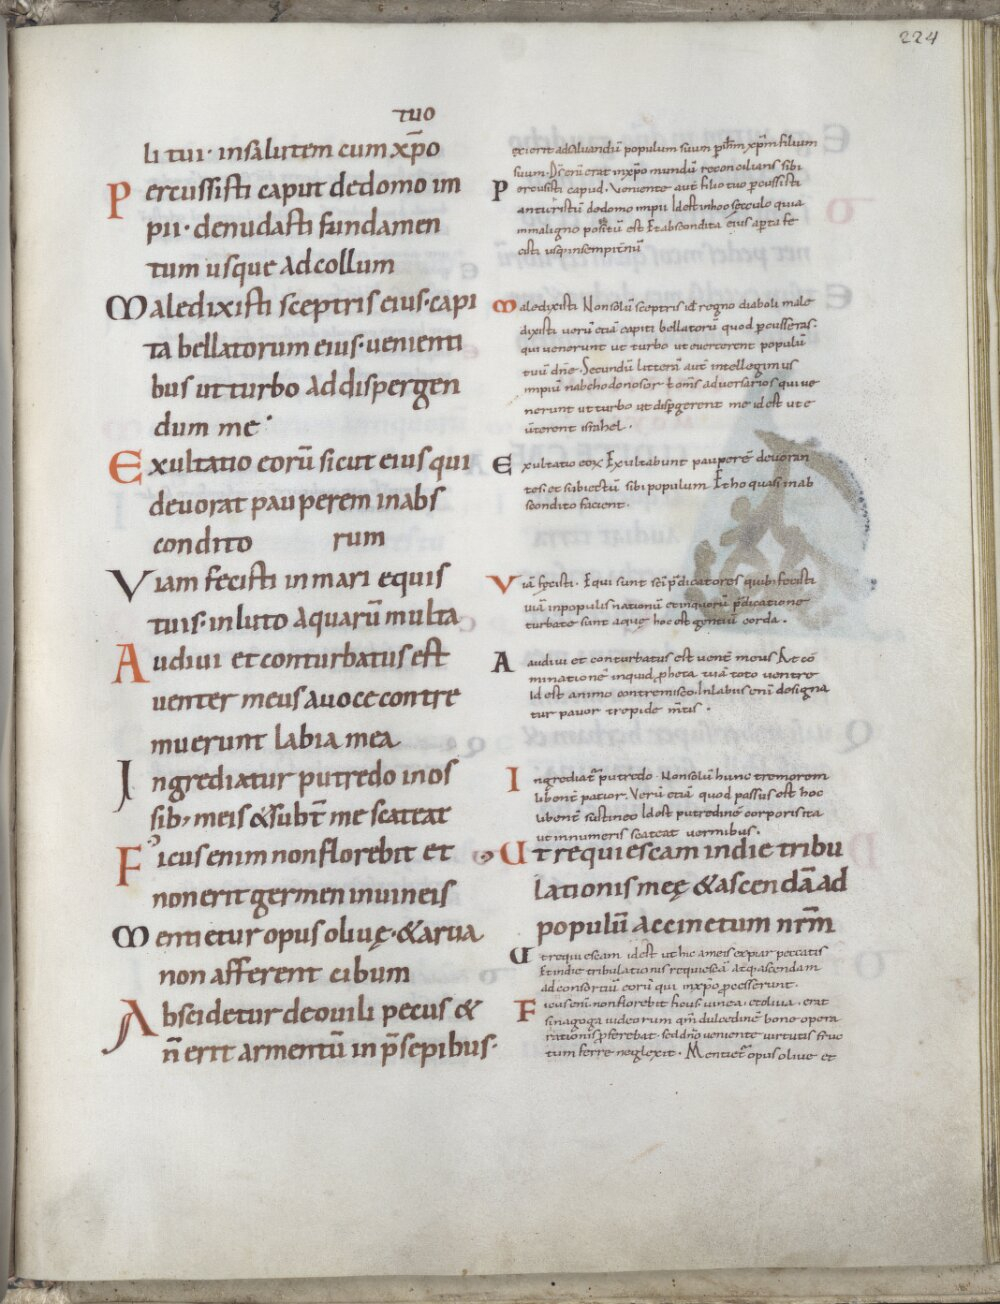 224
tuo
li tui · in salutem cum xp̄o
Percussisti caput de domo im
pii · denudasti fundamen
tum usque ad collum
Maledixisti sceptris eius · capi
ta bellatorum eius · uenienti
bus ut turbo ad dispergen
dum me
Exultatio eorū sicut eius qui
deuorat pauperem in abs
condito rum
Viam fecisti in mari equis
tuis · in luto aquarū multa
Audiui et conturbatus est
uenter meus a uoce contre
muerunt labia mea
Ingrediatur putredo in os
sib; meis & subt̄ me scateat
Ficus enim non florebit et
non erit germen in uineis
Mentietur opus oliuę · & arua
non afferent cibum
Abscidetur de ouili pecus &
n̄ erit armentū in p̄sepibus ·
exierit ad saluandū populum suum p ih̄m xp̄m filium
suum · Dſ enī erat in xp̄o mundū reconcilians sibi
Percusisti capud · Veniente aut̄ filio tuo pcussisti
antixp̄istū de domo impii Id est in hoc seculo quia
in maligno positū est Et abscondita eius apta fe
cisti usq; in sempit̄nū
Maledixisti Non solū sceptris id ē regno diaboli male
dixisti uerū etiā capiti bellatorū quod pcusseras ·
qui uenerunt ut turbo ut euerterent populū
tuū dn̄e · Secundū litterā aut̄ intellegimus
impiū nabchodonosor & om̄s aduersarios qui ue
nerunt ut turbo ut dispgerent me id est ut e
uterent isrl̄hel ·
Exultatio eoꝝ Exultabunt pauperē deuoran
tes et subiectū sibi populum Et hoc quasi in ab
scondito facient ·
Viā fecisti · Equi sunt sc̄i p̄dicatores quib; fecisti
uiā in populis nationū et in quorū p̄dicatione
turbate sunt aque hoc est gentiū corda ·
Audiui et conturbatus est uent̄ meus Ad cō
minationē inquid ppheta tuā toto uentre
Id est animo contremisco · In labiis enī designa
tur pauor trepide m̄tis ·
Ingrediat̄ putredo · Non solū hunc tremorem
libent̄ patior · Verū etiā quod passus est hoc
libent̄ sustineo Id est putredinē corporis ita
ut innumeris scateat uermibus ·
Ut requiescam in die tribu
lationis meę & ascendā ad
populū accinctum nr̄m
Ut requiescam id est ut hic a meis expiar peccatis
Et in die tribulationis requiescā atq; ascendam
ad consortiū eorū qui in xp̄o pcesserunt ·
Ficus enī non florebit ficus uinea · et oliua · erat
sinagoga iudeorum qm̄ dulcedinē bono opera
rationis pferebat sed dn̄o ueniente uirtutis fruc
tum ferre neglexit · Mentiet̄ opus oliue et